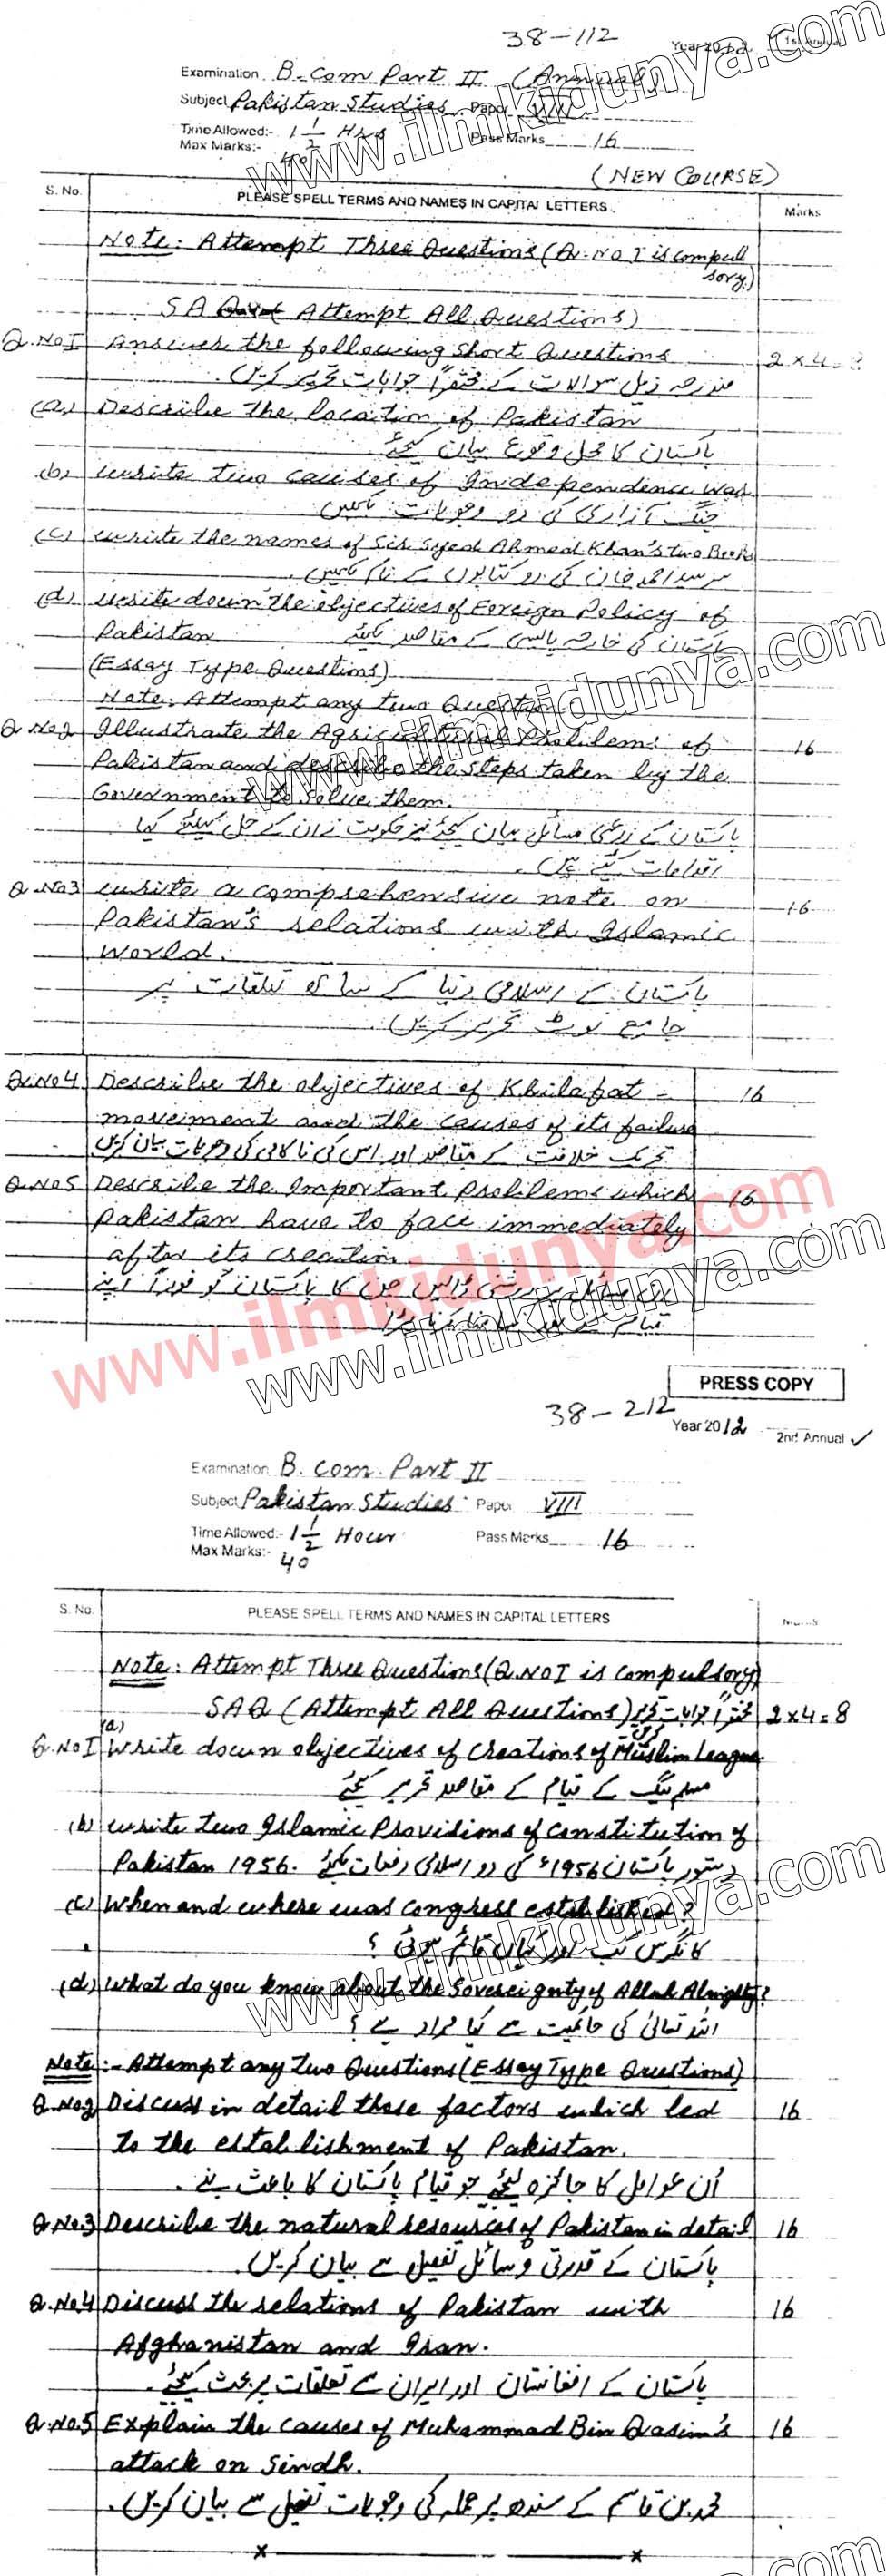 38-112
Year 2012 1st Annual
Examination B.Com Part II (Annual)
Subject Pakistan Studies Paper VIII
Time Allowed:- 1 1/2 Hrs
Max Marks:- 40 Pass Marks 16
(NEW COURSE)
S. No. PLEASE SPELL TERMS AND NAMES IN CAPITAL LETTERS. Marks
Note: Attempt Three Questions (Q. No I is compulsory)
SAQ (Attempt All Questions)
Q. No I Answer the following short Questions 2 x 4 = 8
مندرجہ ذیل سوالات کے مختصراً جوابات تحریر کریں۔
(a) Describe the location of Pakistan
پاکستان کا محل وقوع بیان کیجئے
(b) write two causes of Independence War
جنگ آزادی کی دو وجوہات لکھیں
(c) write the names of Sir Syed Ahmed Khan's two Books
سرسید احمد خان کی دو کتابوں کے نام لکھیں۔
(d) write down the objectives of Foreign Policy of
Pakistan پاکستان کی خارجہ پالیسی کے مقاصد لکھیئے
(Essay Type Questions)
Note: Attempt any two Question
Q No 2 Illustrate the Agricultural Problems of 16
Pakistan and describe the steps taken by the
Government to solve them.
پاکستان کے زرعی مسائل بیان کیجئے نیز حکومت نے ان کے حل کیلئے کیا
اقدامات کئے ہیں۔
Q. No 3 write a comprehensive note on 16
Pakistan's relations with Islamic
World.
پاکستان کے اسلامی دنیا کے ساتھ تعلقات پر
جامع نوٹ تحریر کریں۔
Q. No 4 Describe the objectives of Khilafat- 16
movement and the causes of its failure
تحریک خلافت کے مقاصد اور اس کی ناکامی کی وجوہات بیان کریں
Q. No 5 Describe the Important Problems which 16
Pakistan have to face immediately
after its creation.
پر روشنی ڈالیں جن کا پاکستان کو فوراً اپنے
قیام کے بعد سامنا کرنا پڑا
PRESS COPY
38-212
Year 2012 2nd Annual ✓
Examination B. Com. Part II
Subject Pakistan Studies Paper VIII
Time Allowed:- 1 1/2 Hour Pass Marks 16
Max Marks:- 40
S. No. PLEASE SPELL TERMS AND NAMES IN CAPITAL LETTERS Marks
Note: Attempt Three Questions (Q. No I is compulsory)
SAQ (Attempt All Questions) مختصراً جوابات تحریر کریں 2 x 4 = 8
Q. No I (a) Write down objectives of creations of Muslim League.
مسلم لیگ کے قیام کے مقاصد تحریر کیجئے
(b) write two Islamic Providions of constitution of
Pakistan 1956. دستور پاکستان 1956ء کی دو اسلامی دفعات لکھیئے
(c) When and where was congress established?
کانگرس کب اور کہاں قائم ہوئی ؟
(d) What do you know about the Sovereignty of Allah Almighty?
اللہ تعالیٰ کی حاکمیت سے کیا مراد ہے ؟
Note:- Attempt any two Questions (Essay Type Questions)
Q. No 2 Discuss in detail those factors which led 16
to the establishment of Pakistan.
اُن عوامل کا جائزہ لیجئے جو قیام پاکستان کا باعث بنے۔
Q. No. 3 Describe the natural resources of Pakistan in detail 16
پاکستان کے قدرتی وسائل تفصیل سے بیان کریں۔
Q. No. 4 Discuss the relations of Pakistan with 16
Afghanistan and Iran.
پاکستان کے افغانستان اور ایران سے تعلقات پر بحث کیجئے۔
Q. No. 5 Explain the causes of Muhammad Bin Qasim's 16
attack on Sindh.
محمد بن قاسم کے سندھ پر حملہ کی وجوہات تفصیل سے بیان کریں۔
x x
www.ilmkidunya.com
www.ilmkidunya.com
www.ilmkidunya.com
www.ilmkidunya.com
www.ilmkidunya.com